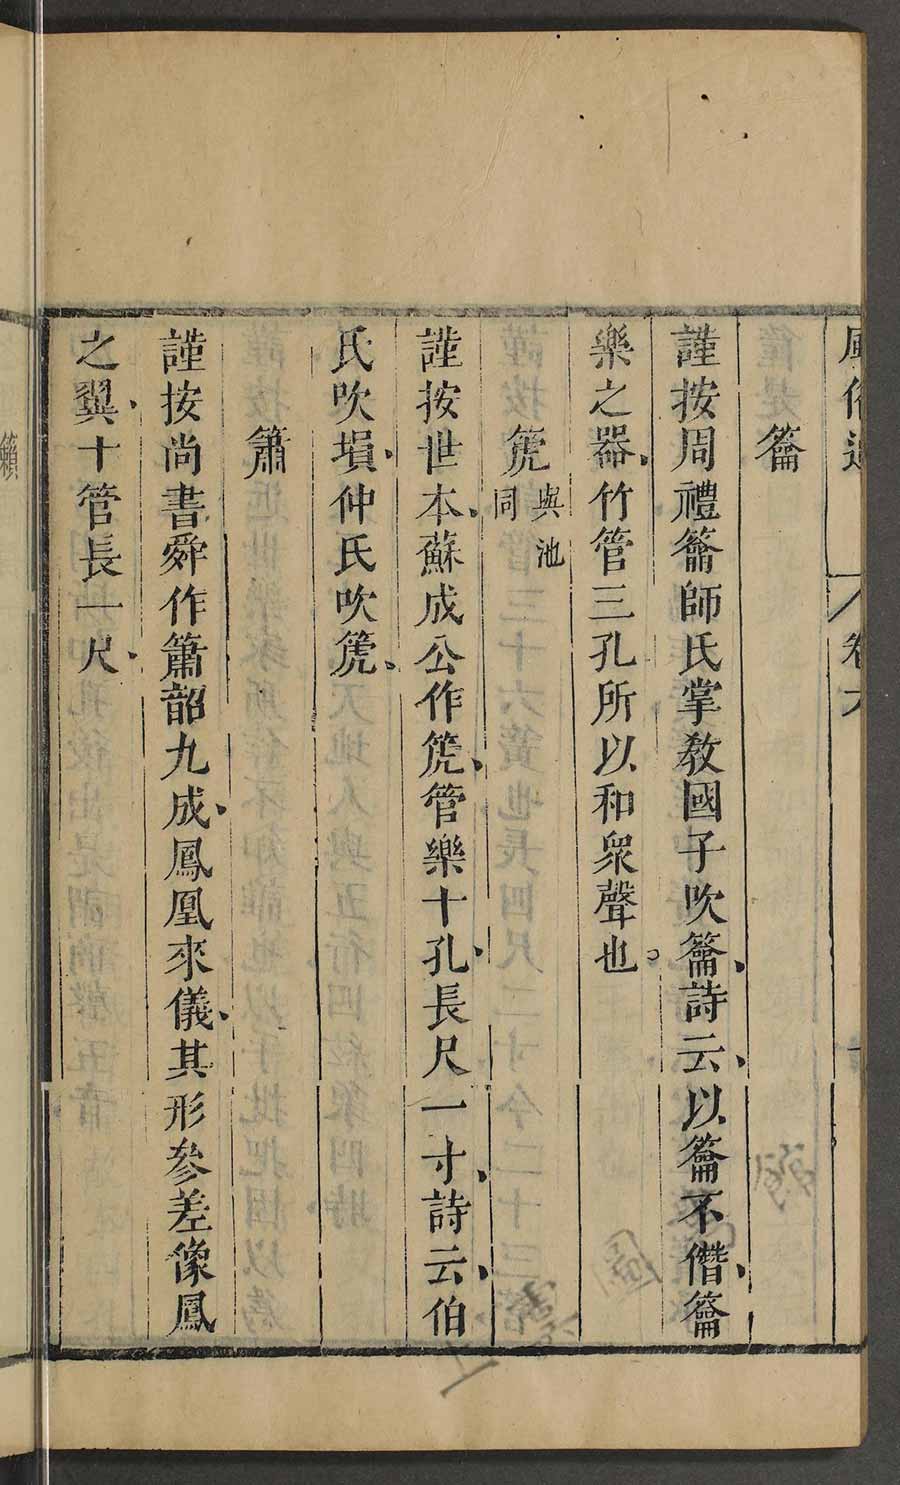 風俗通 卷六
籥
謹按周禮籥師氏掌教國子吹籥詩云以籥不僭籥
樂之器竹管三孔所以和衆聲也
篪 與池同
謹按世本蘇成公作篪管樂十孔長尺一寸詩云伯
氏吹塤仲氏吹篪
簫
謹按尚書舜作簫韶九成鳳凰來儀其形參差像鳳
之翼十管長一尺
籟